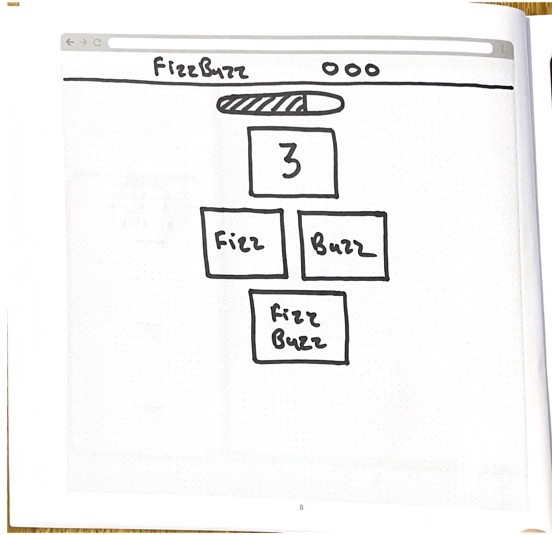 FizzBuzz OOO
3
Fizz Buzz
Fizz
Buzz
8